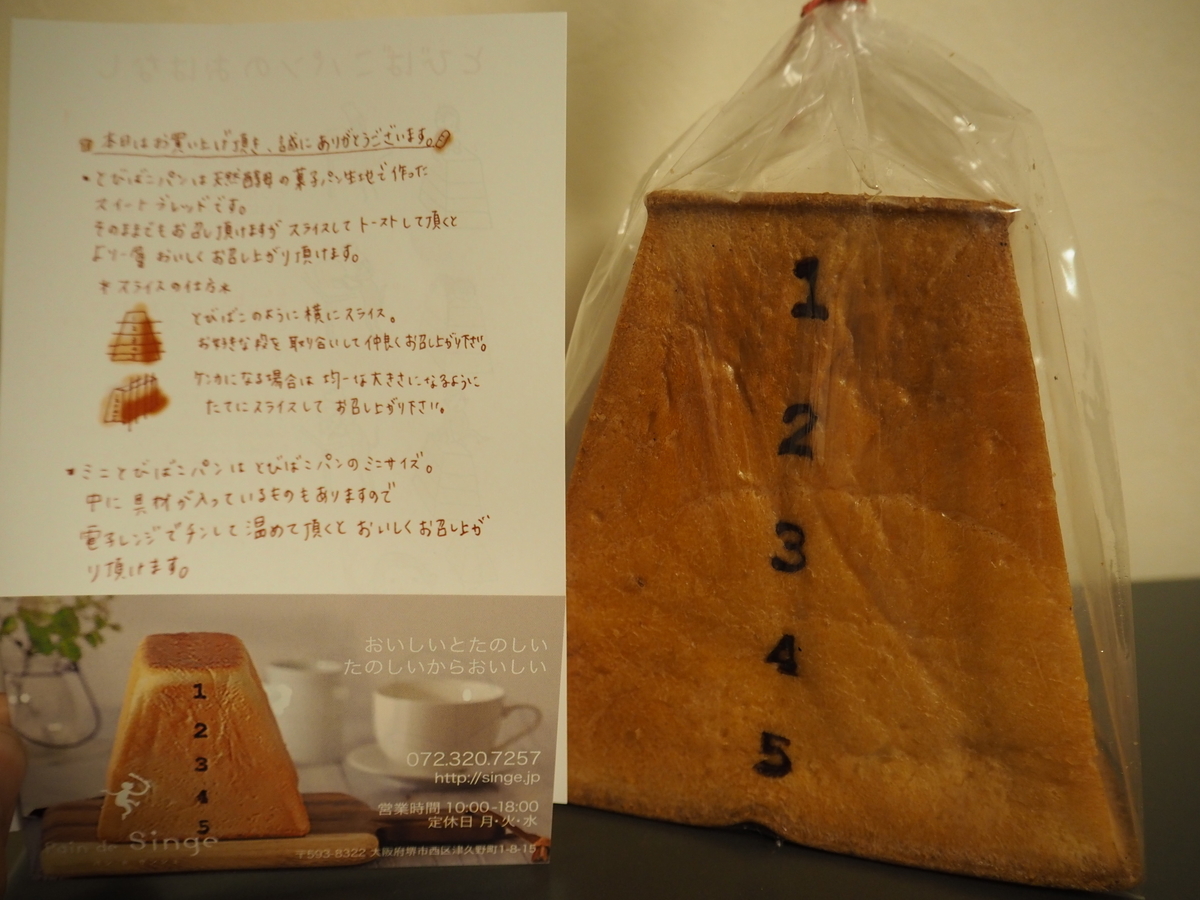 とびばこパンのおはなし
本日はお買い上げ頂き、誠にありがとうございます。
・とびばこパンは天然酵母の菓子パン生地で作った
スイートブレッドです。
そのままでもお召し頂けますが スライスして トーストして頂くと
より一層 おいしく お召し上がり頂けます。
* スライスの仕方*
とびばこのように横にスライス。
お好きな段を取り合いして仲良くお召し上がり下さい。
ケンカになる場合は 均一な大きさになるように
たてにスライスして お召し上がり下さい。
・ミニとびばこパンは とびばこパンのミニサイズ。
中に 具材が入っているものもありますので
電子レンジでチンして温めて頂くと おいしくお召し上が
り頂けます。
おいしいとたのしい
たのしいからおいしい
072.320.7257
http://singe.jp
営業時間 10:00-18:00
定休日 月・火・水
〒593-8322 大阪府堺市西区津久野町1-8-15
Pain de Singe
1
2
3
4
5
1
2
3
4
5